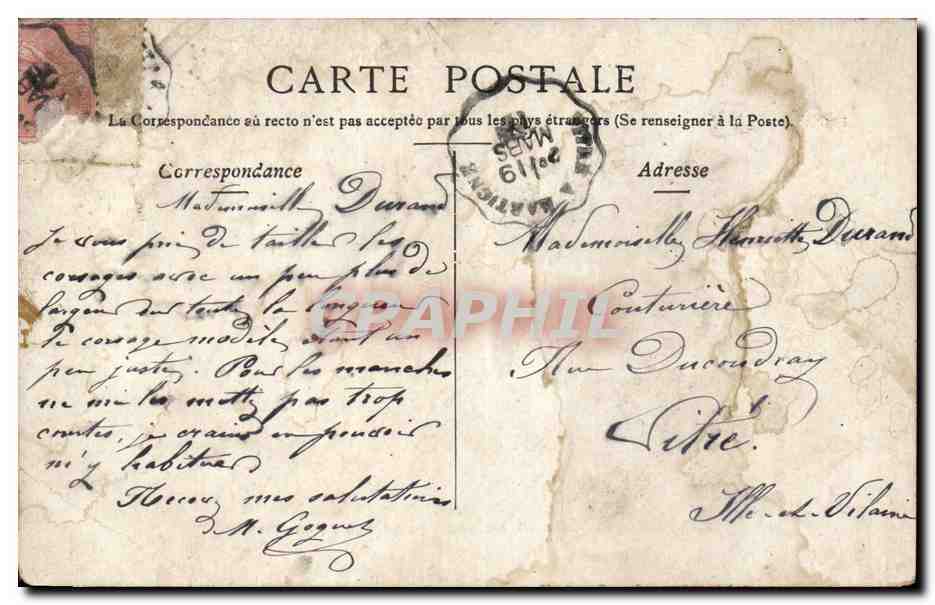 CARTE POSTALE
La Correspondance au recto n'est pas acceptée par tous les pays étrangers (Se renseigner à la Poste).
Correspondance
Mademoiselle Durand
Je vous prie de tailler les
corsages avec un peu plus de
largeur sur toute la longueur
le corsage modèle étant un
peu juste. Pour les manches
ne me les mettez pas trop
courtes, je crains en pouvoir
m'y habituer
Recevez mes salutations
M. Goguet
Adresse
Mademoiselle Henriette Durand
Couturière
Rue Ducoudray
Vitré.
Ille-et-Vilaine
19
MARS
CPAPHIL